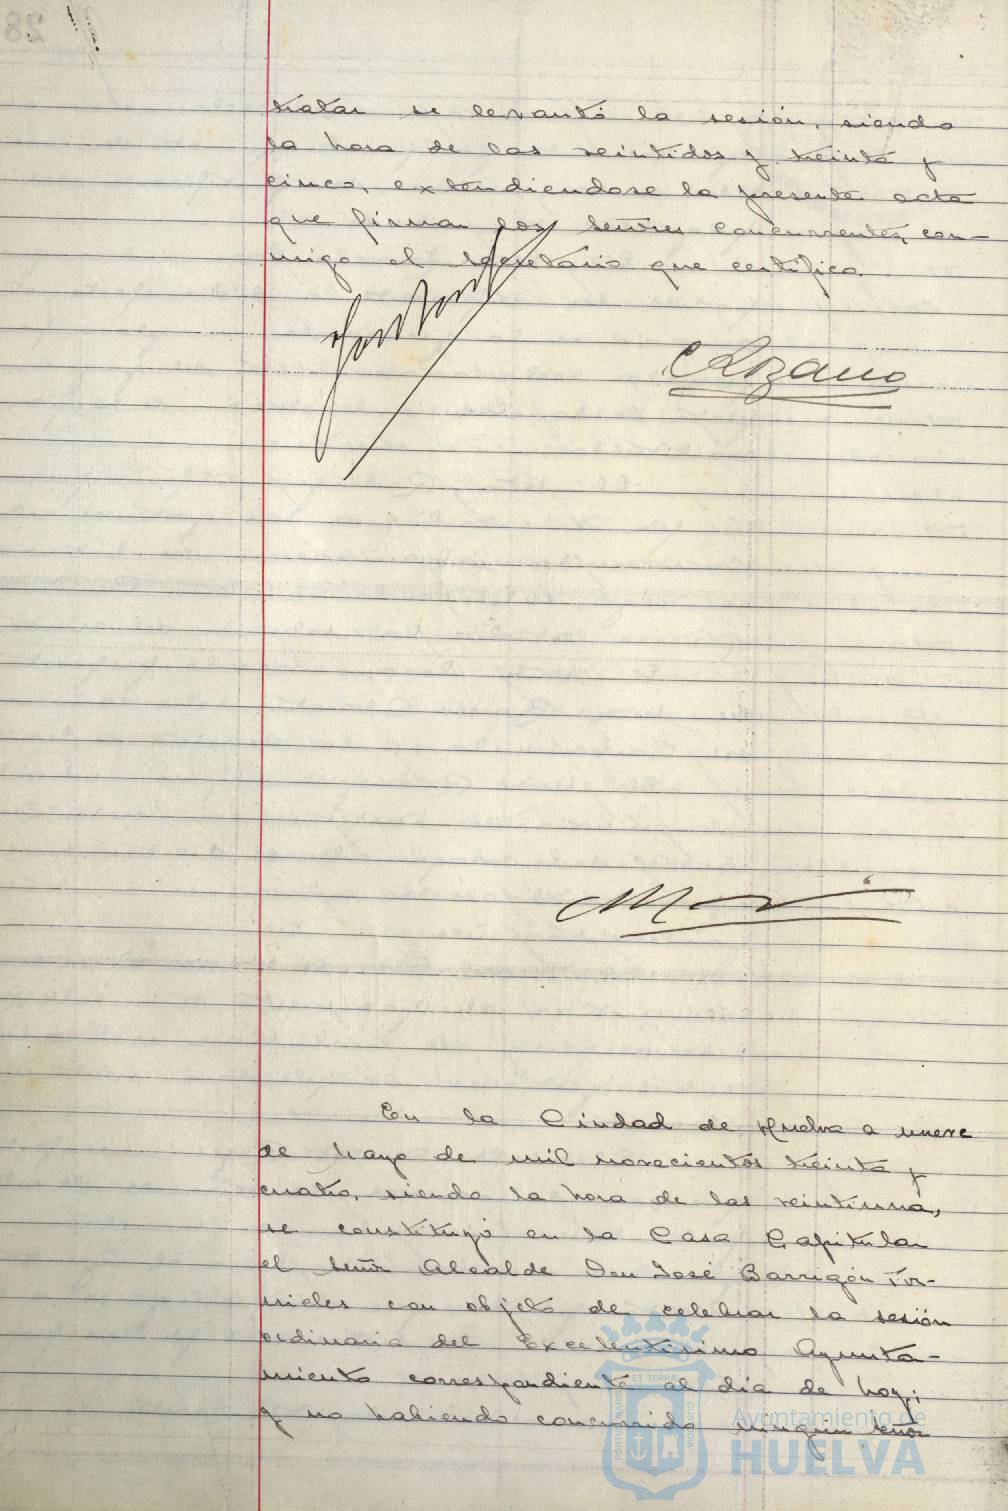 tratar se levantó la sesión, siendo
la hora de las veintidos y treinta y
cinco, extendiendose la presente acta
que firman los Señores concurrentes, con-
migo el Secretario que certifico.
Lozano
En la Ciudad de Huelva a nueve
de Mayo de mil novecientos treinta y
cuatro, siendo la hora de las veintiuna,
se constituyó en la Casa Capitular
el Señor Alcalde Don José Barrigón For-
nieles con objeto de celebrar la sesión
ordinaria del Excelentísimo Ayunta-
miento correspondiente al día de hoy;
y no habiendo concurrido ningún Señor
Ayuntamiento de
HUELVA